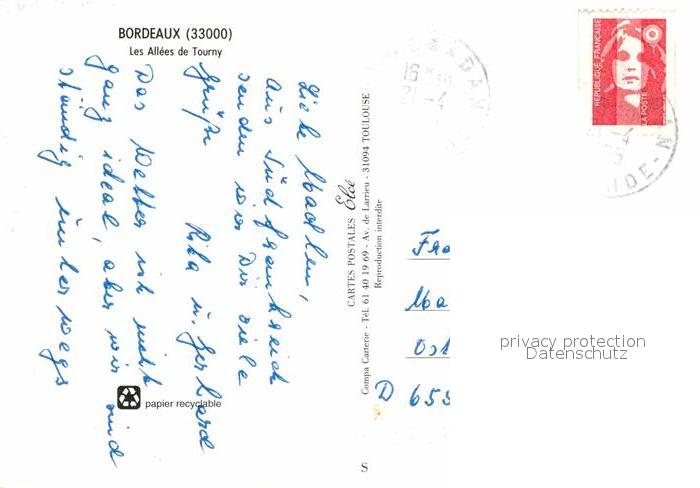 BORDEAUX (33000)
Les Allées de Tourny
Liebe Madlen,
aus Südfrankreich
senden wir Dir viele
Grüße
Rita u. Gerhard
Das Wetter ist nicht
ganz ideal, aber wir sind
ständig unterwegs
papier recyclable
CARTES POSTALES Elcé
Compa Carterie - Tél. 61 40 19 69 - Av. de Larrieu - 31094 TOULOUSE
Reproduction interdite
S
RÉPUBLIQUE FRANÇAISE
LA POSTE
16
21-4
-4
NDE-N
Fra
Ma
Ost
D 655
privacy protection
Datenschutz